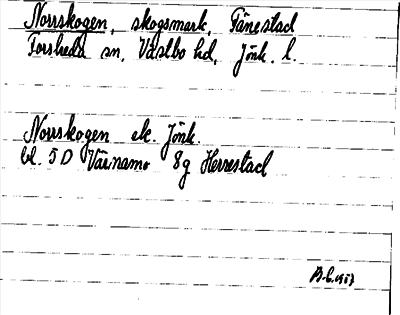 Norrskogen, skogsmark, Tånestad
Forsheda sn, Västbo hd, Jönk. l.
Norrskogen ek. Jönk.
bl. 5D Värnamo 8g Herrestad